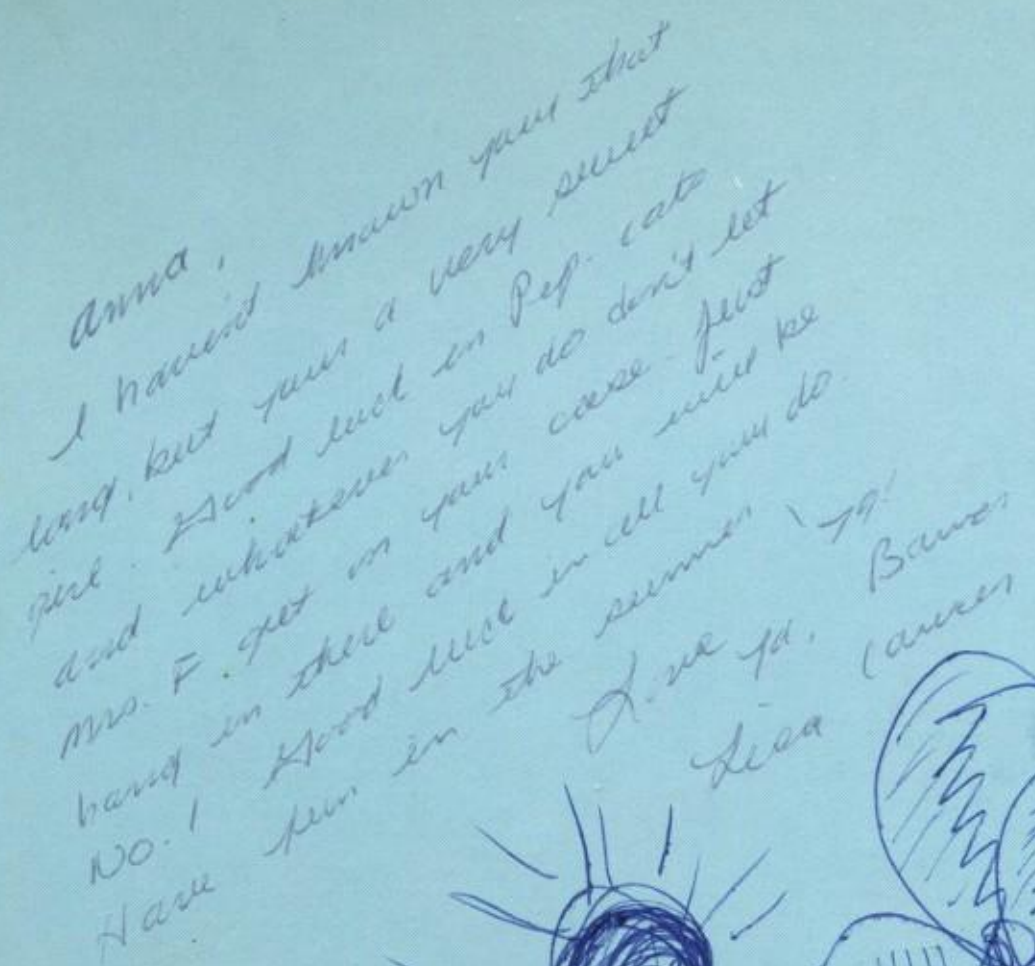 Anna,
I haven't known you that
long, but your a very sweet
girl. Good luck in Pep. cats
and whatever you do don't let
Mrs. F get on your case. Just
hang in there and you will be
No. 1 Good luck in all you do.
Have fun in the summer '79!
Love ya,
Lisa